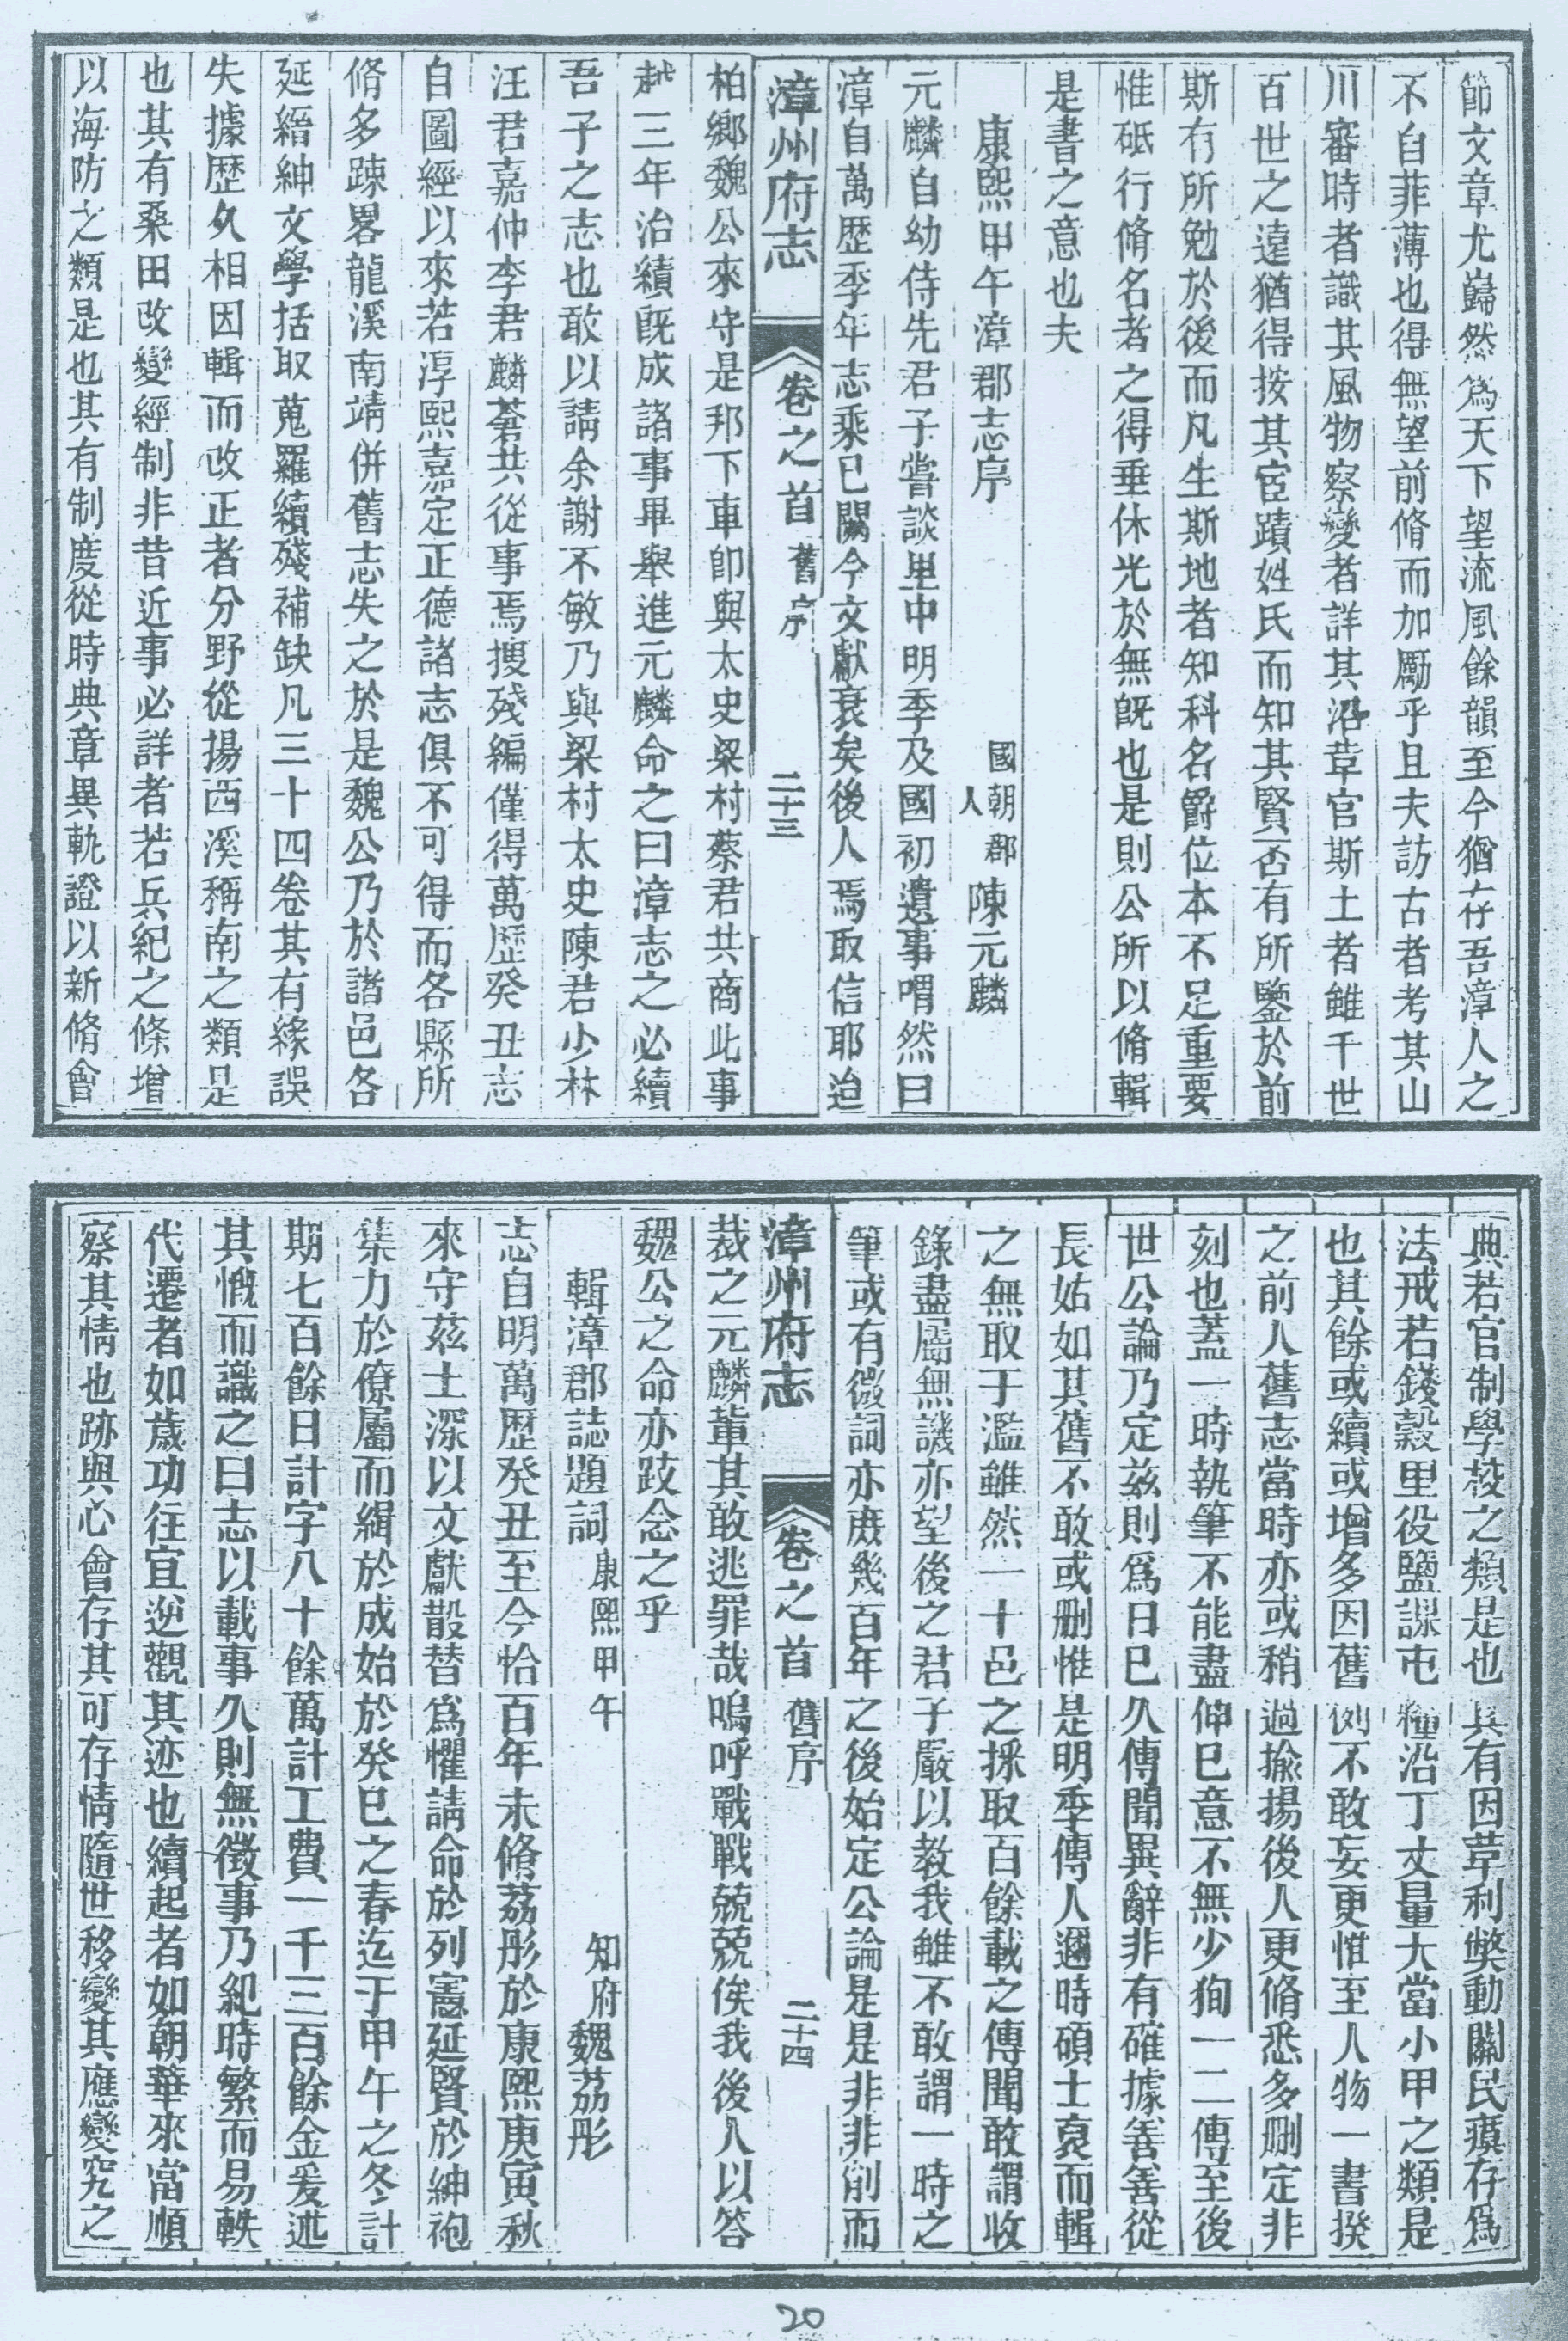 節文章尤巋然爲天下望流風餘韻至今猶存吾漳人之
不自菲薄也得無望前脩而加勵乎且夫訪古者考其山
川審時者識其風物察變者詳其沿革官斯土者雖千世
百世之遠猶得按其宦蹟姓氏而知其賢否有所鑒於前
斯有所勉於後而凡生斯地者知科名爵位本不足重要
惟砥行脩名者之得垂休光於無旣也是則公所以脩輯
是書之意也夫
康熙甲午漳郡志序 國朝郡人陳元麟
元麟自幼侍先君子嘗談里中明季及國初遺事喟然曰
漳自萬歷季年志乘已闕今文獻衰矣後人焉取信耶迨
漳州府志 卷之首 舊序 二十三
柏鄉魏公來守是邦下車卽與太史梁村蔡君共商此事
越三年治績旣成諸事畢舉進元麟命之曰漳志之必續
吾子之志也敢以請余謝不敏乃與梁村太史陳君少林
汪君嘉仲李君麟蒼共從事焉搜殘編僅得萬歷癸丑志
自圖經以來若淳熙嘉定正德諸志俱不可得而各縣所
脩多踈畧龍溪南靖併舊志失之於是魏公乃於諸邑各
延縉紳文學括取蒐羅續殘補缺凡三十四卷其有緣誤
失據歷久相因輯而改正者分野從揚西溪稱南之類是
也其有桑田改變經制非昔近事必詳者若兵紀之條增
以海防之類是也其有制度從時典章異軌證以新脩會
典若官制學校之類是也其有因革利獘動關民瘼存爲
法戒若錢穀里役鹽課屯糧沿丁丈量大當小甲之類是
也其餘或續或增多因舊例不敢妄更惟至人物一書揆
之前人舊志當時亦或稍過揄揚後人更脩悉多刪定非
刻也蓋一時執筆不能盡伸已意不無少狥一二傳至後
世公論乃定兹則爲日已久傳聞異辭非有確據善善從
長姑如其舊不敢或刪惟是明季傳人邇時碩士裒而輯
之無取于濫雖然一十邑之採取百餘載之傳聞敢謂收
錄盡屬無譏亦望後之君子嚴以教我雖不敢謂一時之
筆或有微詞亦庶幾百年之後始定公論是是非非削而
漳州府志 卷之首 舊序 二十四
裁之元麟輩其敢逃罪哉嗚呼戰戰兢兢俟我後人以答
魏公之命亦跂念之乎
輯漳郡誌題詞 康熙甲午 知府魏荔彤
志自明萬歷癸丑至今恰百年未脩荔彤於康熙庚寅秋
來守茲土深以文獻散替爲懼請命於列憲延賢於紳袍
集力於僚屬而緝於成始於癸巳之春迄于甲午之冬計
期七百餘日計字八十餘萬計工費一千三百餘金爰述
其慨而識之曰志以載事久則無徵事乃紀時繁而易軼
代遷者如歲功往宜逆觀其迹也續起者如朝華來當順
察其情也跡與心會存其可存情隨世移變其應變究之
20